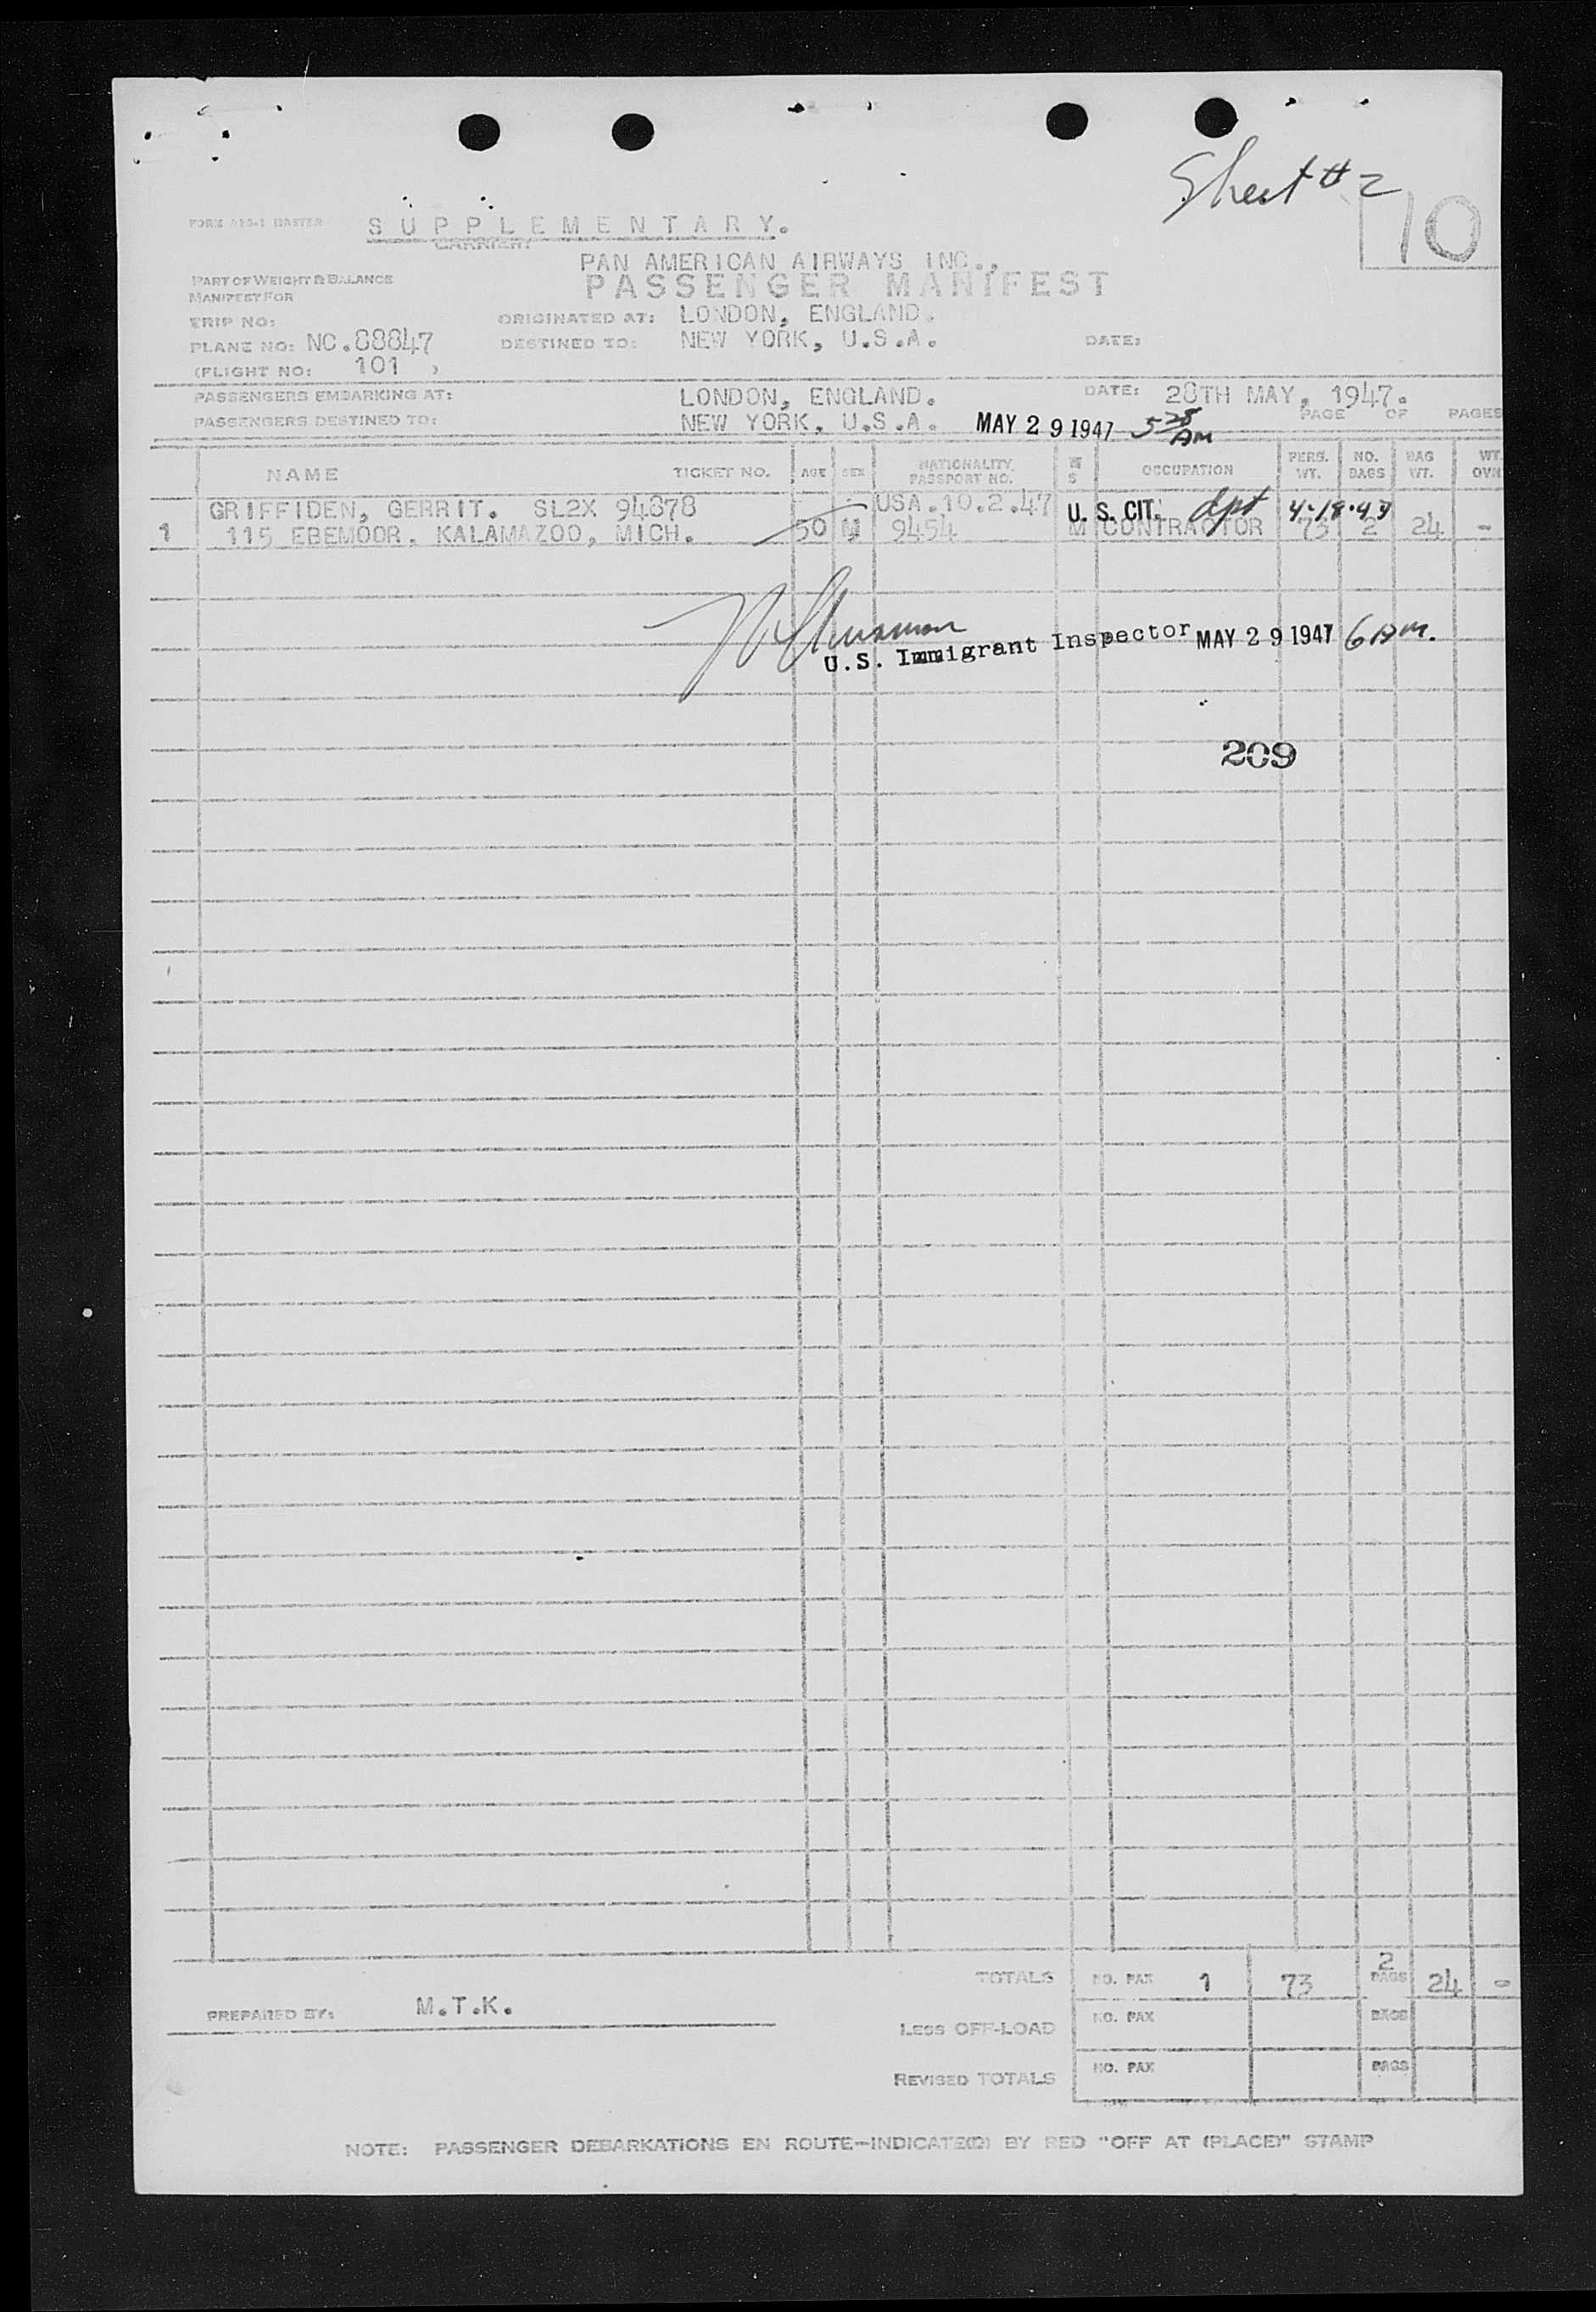 Sheet # 2
10
SUPPLEMENTARY.
CARRIER:
PAN AMERICAN AIRWAYS INC.,
PART OF WEIGHT & BALANCE
MANIFEST FOR
PASSENGER MANIFEST
TRIP NO: ORIGINATED AT: LONDON, ENGLAND.
PLANE NO: NC.88847 DESTINED TO: NEW YORK, U.S.A. DATE:
(FLIGHT NO: 101 )
PASSENGERS EMBARKING AT: LONDON, ENGLAND. DATE: 28TH MAY, 1947.
PASSENGERS DESTINED TO: NEW YORK, U.S.A. MAY 29 1947 5 28 AM PAGE OF PAGES
NAME TICKET NO. AGE SEX NATIONALITY, PASSPORT NO. M S OCCUPATION PERS. WT. NO. BAGS BAG WT. WT. OVR
GRIFFIDEN, GERRIT. SL2X 94878 USA.10.2.47 U. S. CIT. dpt 4.18.47
1 115 EBEMOOR. KALAMAZOO, MICH. 50 M 9454 M CONTRACTOR 73 2 24 -
U.S. Immigrant Inspector MAY 29 1947 6 AM.
209
TOTALS NO. PAX 1 73 2 BAGS 24 -
PREPARED BY: M.T.K.
LESS OFF-LOAD NO. PAX BAGS
REVISED TOTALS NO. PAX BAGS
NOTE: PASSENGER DEBARKATIONS EN ROUTE-INDICATE(D) BY RED "OFF AT (PLACE)" STAMP